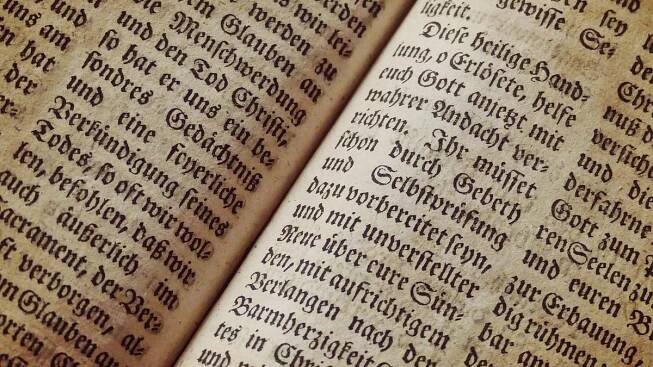 wir lei-
werden zu
Glauben an
Menschwerdung
und den Tod Christi,
so hat er uns ein be-
sondres Gedächtniß
und eine feyerliche
Verkündigung seines
Todes, so oft wir wol-
len, befohlen, daß wir
auch äußerlich im
Sacrament, der Ver-
verborgen, al-
Glauben an
uns am
ligkeit.
Diese heilige Hand-
lung, o Erlösete, helfe
euch Gott anjetzt mit
wahrer Andacht ver-
richten. Ihr müsset
schon durch Gebeth
und Selbstprüfung
dazu vorbereitet seyn,
und mit unverstellter
Reue über eure Sün-
den, mit aufrichtigem
Verlangen nach der
Barmherzigkeit
tes in
gewisse Se-
und die
derfahrne
Gott zum
ren Seelen zu
und euren
zur Erbauung,
dig rühmen
bar